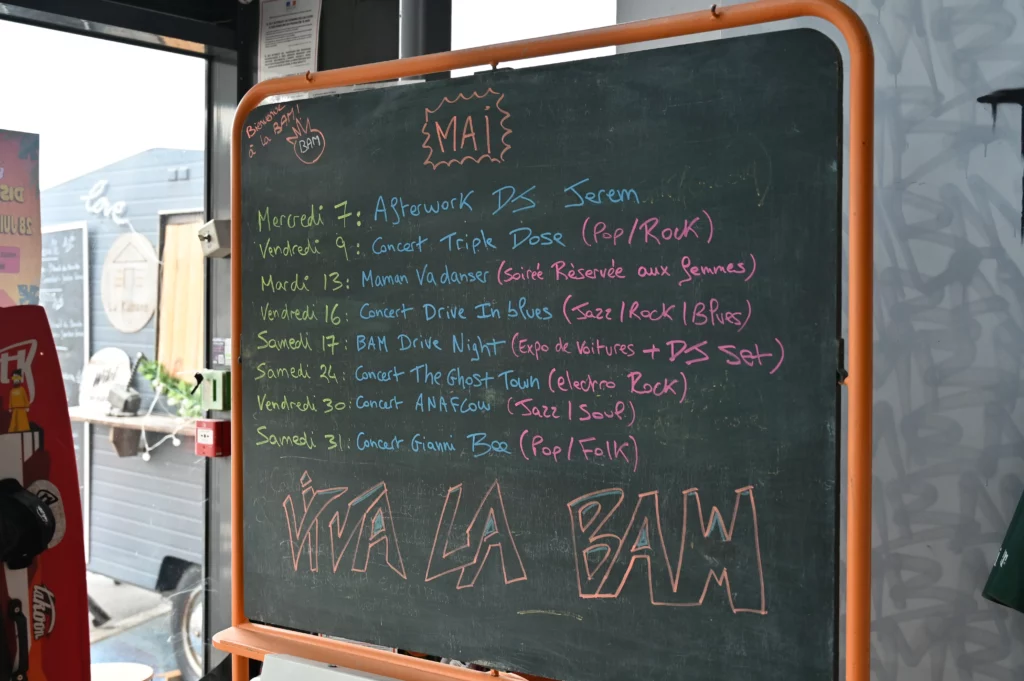 Bienvenue
à la BAM!
BAM
MAI
Mercredi 7: Afterwork DJ Jerem
Vendredi 9: Concert Triple Dose (Pop/Rock)
Mardi 13: Maman Va danser (Soirée Réservée aux femmes)
Vendredi 16: Concert Drive In blues (Jazz/Rock/Blues)
Samedi 17: BAM Drive Night (Expo de Voitures + DJ Set)
Samedi 24: Concert The Ghost Town (électro Rock)
Vendredi 30: Concert ANAFLOW (Jazz/Soul)
Samedi 31: Concert Gianni Bee (Pop/Folk)
VIVA LA BAM
love
28 JUIN
takoon